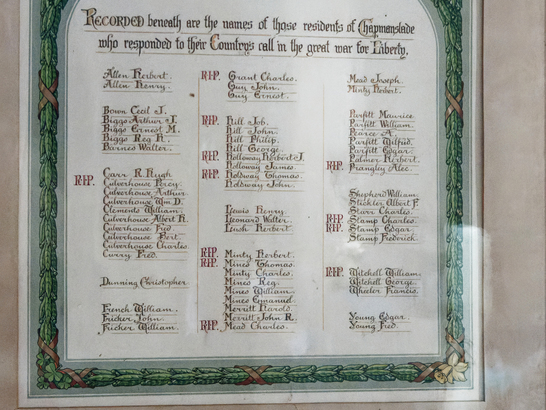 RECORDED beneath are the names of those residents of Chapmanslade
who responded to their Country's call in the great war for Liberty.
Allen Herbert.
Allen Henry.
Bown Cecil J.
Biggs Arthur J.
Biggs Ernest M.
Biggs Reg H.
Barnes Walter.
R.I.P. Carr R. Hugh
Culverhouse Percy.
Culverhouse Arthur
Culverhouse Wm D.
Clements William.
Culverhouse Albert R.
Culverhouse Fred
Culverhouse Bert
Culverhouse Charles
Curry Fred.
Dunning Christopher
French William.
Fricker John.
Fricker William.
R.I.P. Grant Charles.
Guy John.
Guy Ernest.
R.I.P. Hill Job.
Hill John.
Hill Philip.
Hill George.
R.I.P. Holloway Herbert J.
Holloway James.
R.I.P. Holdway Thomas.
Holdway John.
Lewis Henry.
Leonard Walter.
Lewis Herbert
R.I.P. Minty Herbert.
R.I.P. Mines Thomas.
Minty Charles.
Mines Reg.
Mines William.
Mines Emanuel.
Merritt Harold.
Merritt John R.
R.I.P. Mead Charles.
Mead Joseph.
Minty Robert.
Parfitt Maurice.
Parfitt William.
Pearce A.
Parfitt Wilfred.
Parfitt Edgar.
Palmer Herbert.
R.I.P. Prangley Alec.
Shepherd William.
Stickler Albert F.
Starr Charles.
R.I.P. Stamp Charles.
R.I.P. Stamp Edgar.
Stamp Frederick.
R.I.P. Witchell William.
Witchell George.
Wheeler Francis.
Young Edgar.
Young Fred.